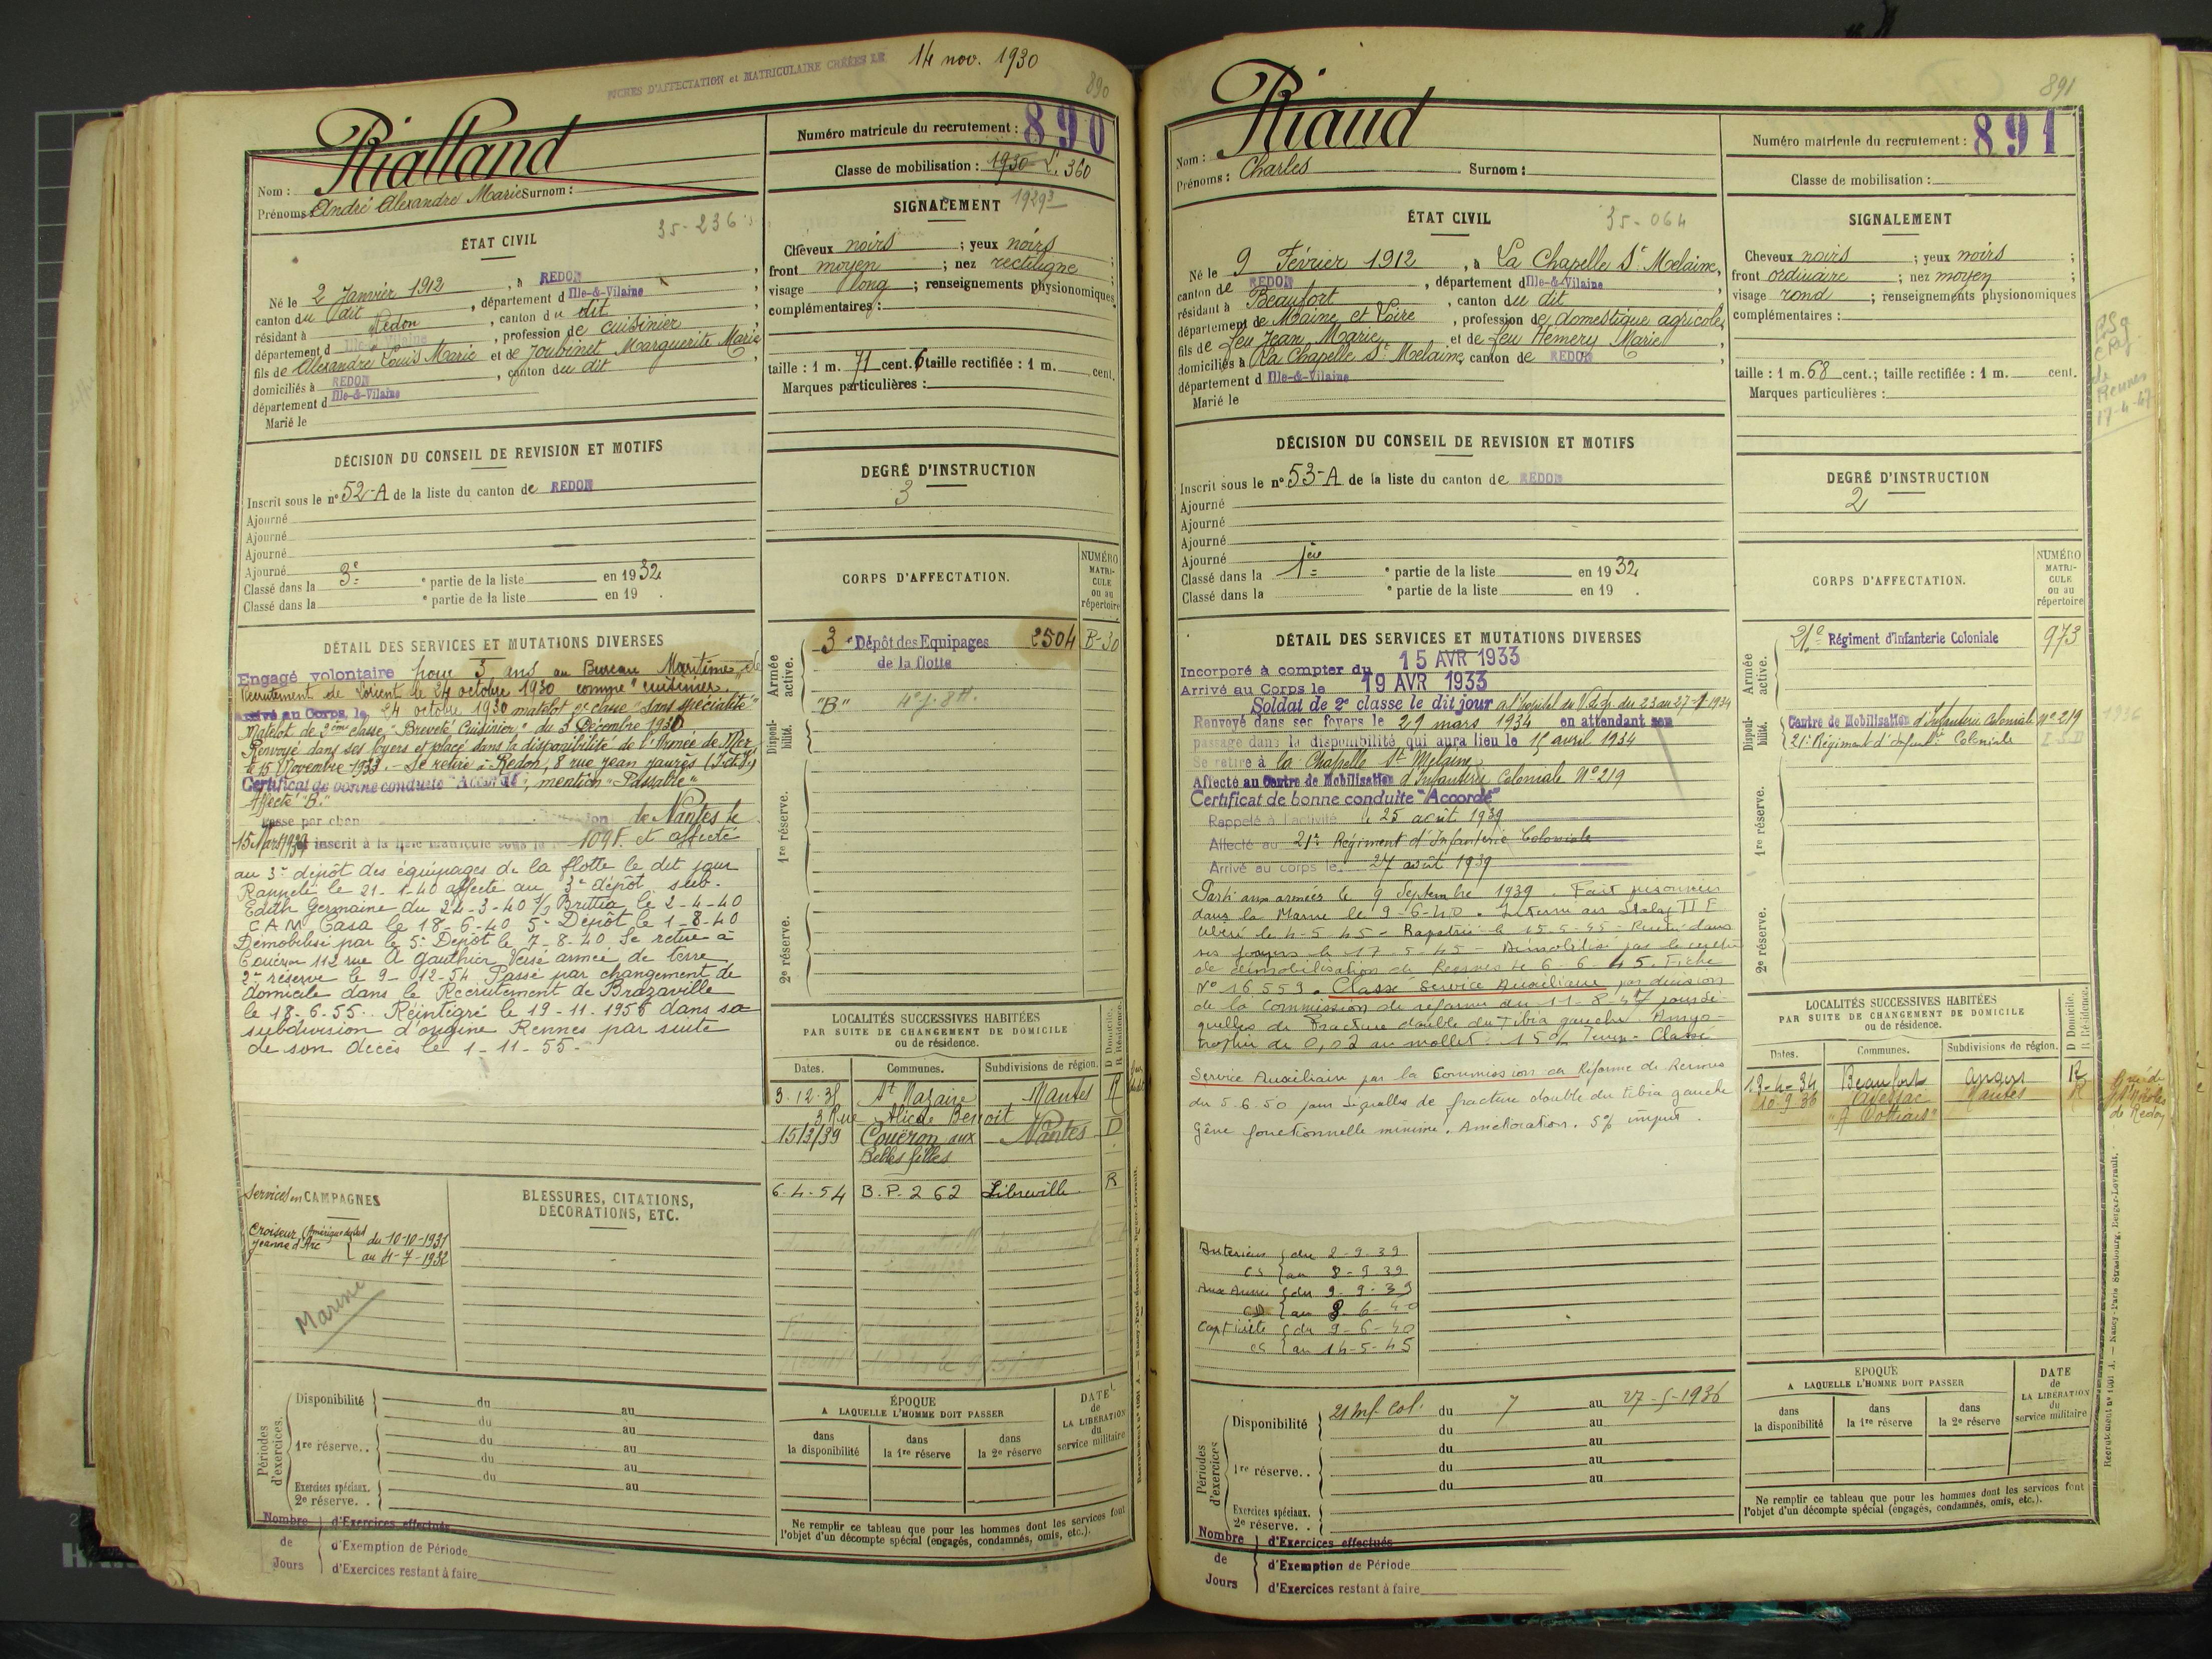 FICHES D'AFFECTATION et MATRICULAIRE CRÉÉES LE 14 nov. 1930
890
Rialland
Nom :
Prénoms : André Alexandre Marie Surnom :
Numéro matricule du recrutement : 890
Classe de mobilisation : 1930 L. 360
1929 3
35-236
ÉTAT CIVIL
Né le 2 Janvier 1912, à REDON,
canton du dit, département d Ille-&-Vilaine
résidant à Redon, canton du dit
département d Ille-&-Vilaine, profession de cuisinier
fils de Alexandre Louis Marie et de Joubinet Marguerite Marie
domiciliés à REDON, canton du dit
département d Ille-&-Vilaine
Marié le
SIGNALEMENT
Cheveux noirs ; yeux noirs ;
front moyen ; nez rectiligne ;
visage long ; renseignements physionomiques
complémentaires :
taille : 1 m. 71 cent. 6 taille rectifiée : 1 m. cent.
Marques particulières :
DÉCISION DU CONSEIL DE REVISION ET MOTIFS
Inscrit sous le n° 52-A de la liste du canton de REDON
Ajourné
Ajourné
Ajourné
Ajourné
Classé dans la 3e e partie de la liste en 1932
Classé dans la e partie de la liste en 19 .
DEGRÉ D'INSTRUCTION
3
DÉTAIL DES SERVICES ET MUTATIONS DIVERSES
Engagé volontaire pour 3 ans au Bureau Maritime de
Recrutement de Lorient le 24 octobre 1930 comme "cuisinier"
Arrivé au Corps, le 24 octobre 1930 matelot 2e classe "sans spécialité"
Matelot de 2ème classe "Breveté Cuisinier" du 3 Décembre 1930
Renvoyé dans ses foyers et placé dans la disponibilité de l'Armée de Mer
le 15 Novembre 1933. - Se retire à Redon, 8 rue Jean Jaurès (I. et V.)
Certificat de bonne conduite "Accordé", mention "Passable"
Affecté "B."
Passé par chan de Nantes le
15 Mars 1939 et inscrit à la liste matricule sous le n° 1091. et affecté
au 3e dépôt des équipages de la flotte le dit jour
Rappelé le 21-1-40 affecté au 3e dépôt sub.
Edith Germaine du 24-3-40 Brittia le 2-4-40
C.A.M. Casa le 18-6-40 5e Dépôt le 1-8-40
Démobilisé par le 5e Dépôt le 7-8-40 Se retire à
Couëron 112 rue A gauthier Versé armée de terre
2e réserve le 9-12-54 Passé par changement de
domicile dans le Recrutement de Brazaville
le 18-6-55. Réintégré le 19-11-1956 dans sa
subdivision d'origine Rennes par suite
de son décès le 1-11-55.
CORPS D'AFFECTATION.
NUMÉRO MATRICULE ou au répertoire
Armée active.
3e Dépôt des Equipages de la flotte 2504 B-30
"B"
Disponibilité.
1re réserve.
2e réserve.
LOCALITÉS SUCCESSIVES HABITÉES
PAR SUITE DE CHANGEMENT DE DOMICILE
ou de résidence.
D Domicile. R Résidence.
Dates. Communes. Subdivisions de région.
3-12-38 St Nazaire Nantes R
3 Rue Alice Benoit
15/3/39 Couëron aux Nantes D
Belles filles
6-4-54 B.P. 262 Libreville R
Services en CAMPAGNES
BLESSURES, CITATIONS,
DÉCORATIONS, ETC.
Croiseur Jeanne d'Arc
du 10-10-1931
au 4-7-1932
Marine
Périodes d'exercices.
Disponibilité du au
du au
1re réserve. . du au
du au
du au
Exercices spéciaux.
2e réserve. .
ÉPOQUE
A LAQUELLE L'HOMME DOIT PASSER
dans la disponibilité
dans la 1re réserve
dans la 2e réserve
DATE de LA LIBÉRATION du service militaire
Ne remplir ce tableau que pour les hommes dont les services font
l'objet d'un décompte spécial (engagés, condamnés, omis, etc.).
Nombre de Jours
d'Exercices effectués
d'Exemption de Période
d'Exercices restant à faire
891
Riaud
Nom :
Prénoms : Charles Surnom :
Numéro matricule du recrutement : 891
Classe de mobilisation :
35-064
ÉTAT CIVIL
Né le 9 Février 1912, à La Chapelle St Melaine,
canton de REDON, département d Ille-&-Vilaine
résidant à Beaufort, canton du dit
département de Maine et Loire, profession de domestique agricole,
fils de feu Jean Marie et de feu Hemery Marie
domiciliés à La Chapelle St Melaine, canton de REDON
département d Ille-&-Vilaine
Marié le
SIGNALEMENT
Cheveux noirs ; yeux noirs ;
front ordinaire ; nez moyen ;
visage rond ; renseignements physionomiques
complémentaires :
taille : 1 m. 68 cent.; taille rectifiée : 1 m. cent.
Marques particulières :
de
Rennes
17-4-47
DÉCISION DU CONSEIL DE REVISION ET MOTIFS
Inscrit sous le n° 53-A de la liste du canton de REDON
Ajourné
Ajourné
Ajourné
Ajourné
Classé dans la 1ère e partie de la liste en 1932
Classé dans la e partie de la liste en 19 .
DEGRÉ D'INSTRUCTION
2
DÉTAIL DES SERVICES ET MUTATIONS DIVERSES
Incorporé à compter du 15 AVR 1933
Arrivé au Corps le 19 AVR 1933
Soldat de 2e classe le dit jour a l'hopital du V. de G. du 23 au 27-1-1934
Renvoyé dans ses foyers le 29 mars 1934 en attendant son
passage dans la disponibilité qui aura lieu le 15 avril 1934
Se retire à la Chapelle St Melaine
Affecté au Centre de Mobilisation d'Infanterie Coloniale N° 219
Certificat de bonne conduite "Accordé"
Rappelé à l'activité le 25 août 1939
Affecté au 21e Régiment d'Infanterie Coloniale
Arrivé au corps le 27 août 1939
Parti aux armées le 9 Septembre 1939. Fait prisonnier
dans la Marne le 9-6-40. Interné au Stalag II E
libéré le 4-5-45. Rapatrié le 15-5-45 - Rentré dans
ses foyers le 17-5-45 - Démobilisé par le centre
de démobilisation de Rennes le 6-6-45. Fiche
N° 16559. Classé Service Auxiliaire par décision
de la Commission de réforme du 11-8-47 pour sé-
quelles de Fracture double du Tibia gauche. Amyo-
trophie de 0,02 au mollet. 15% Temp. - Classé
Service Auxiliaire par la Commission de Réforme de Rennes
du 5.6.50 pour séquelles de fracture double du tibia gauche
Gêne fonctionnelle minime. Amélioration. 5% imput.
CORPS D'AFFECTATION.
NUMÉRO MATRICULE ou au répertoire
Armée active.
21e Régiment d'Infanterie Coloniale 973
Disponibilité.
Centre de Mobilisation d'Infanterie Coloniale N° 219 1936
21e Régiment d'Infant. Coloniale
1re réserve.
2e réserve.
LOCALITÉS SUCCESSIVES HABITÉES
PAR SUITE DE CHANGEMENT DE DOMICILE
ou de résidence.
D Domicile. R Résidence.
Dates. Communes. Subdivisions de région.
19-4-34 Beaufort Angers R
10-9-36 Avessac Nantes R
de Redon
Intérieur CS
du 2-9-39
au 8-9-39
Aux Armées CD
du 9-9-39
au 8-6-40
Captivité CS
du 9-6-40
au 14-5-45
Périodes d'exercices.
Disponibilité 21 Inf. Col. du 7 au 27-5-1936
du au
du au
1re réserve. . du au
du au
Exercices spéciaux.
2e réserve. .
ÉPOQUE
A LAQUELLE L'HOMME DOIT PASSER
dans la disponibilité
dans la 1re réserve
dans la 2e réserve
DATE de LA LIBÉRATION du service militaire
Ne remplir ce tableau que pour les hommes dont les services font
l'objet d'un décompte spécial (engagés, condamnés, omis, etc.).
Nombre de Jours
d'Exercices effectués
d'Exemption de Période
d'Exercices restant à faire
Recrutement n° 1001 A. — Nancy-Paris-Strasbourg, Berger-Levrault.